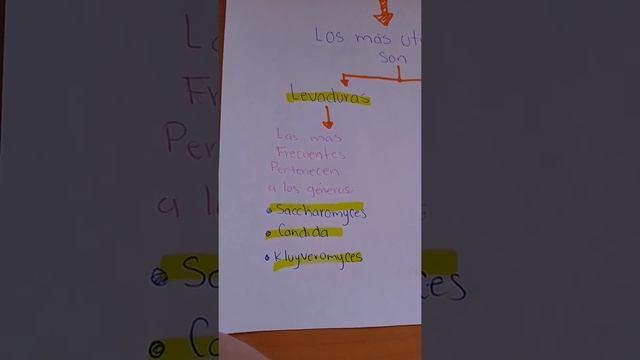 Los más
son
Levaduras
Las más
Frecuentes
Pertenecen
a los géneros:
• Saccharomyces
• Candida
• Kluyveromyces